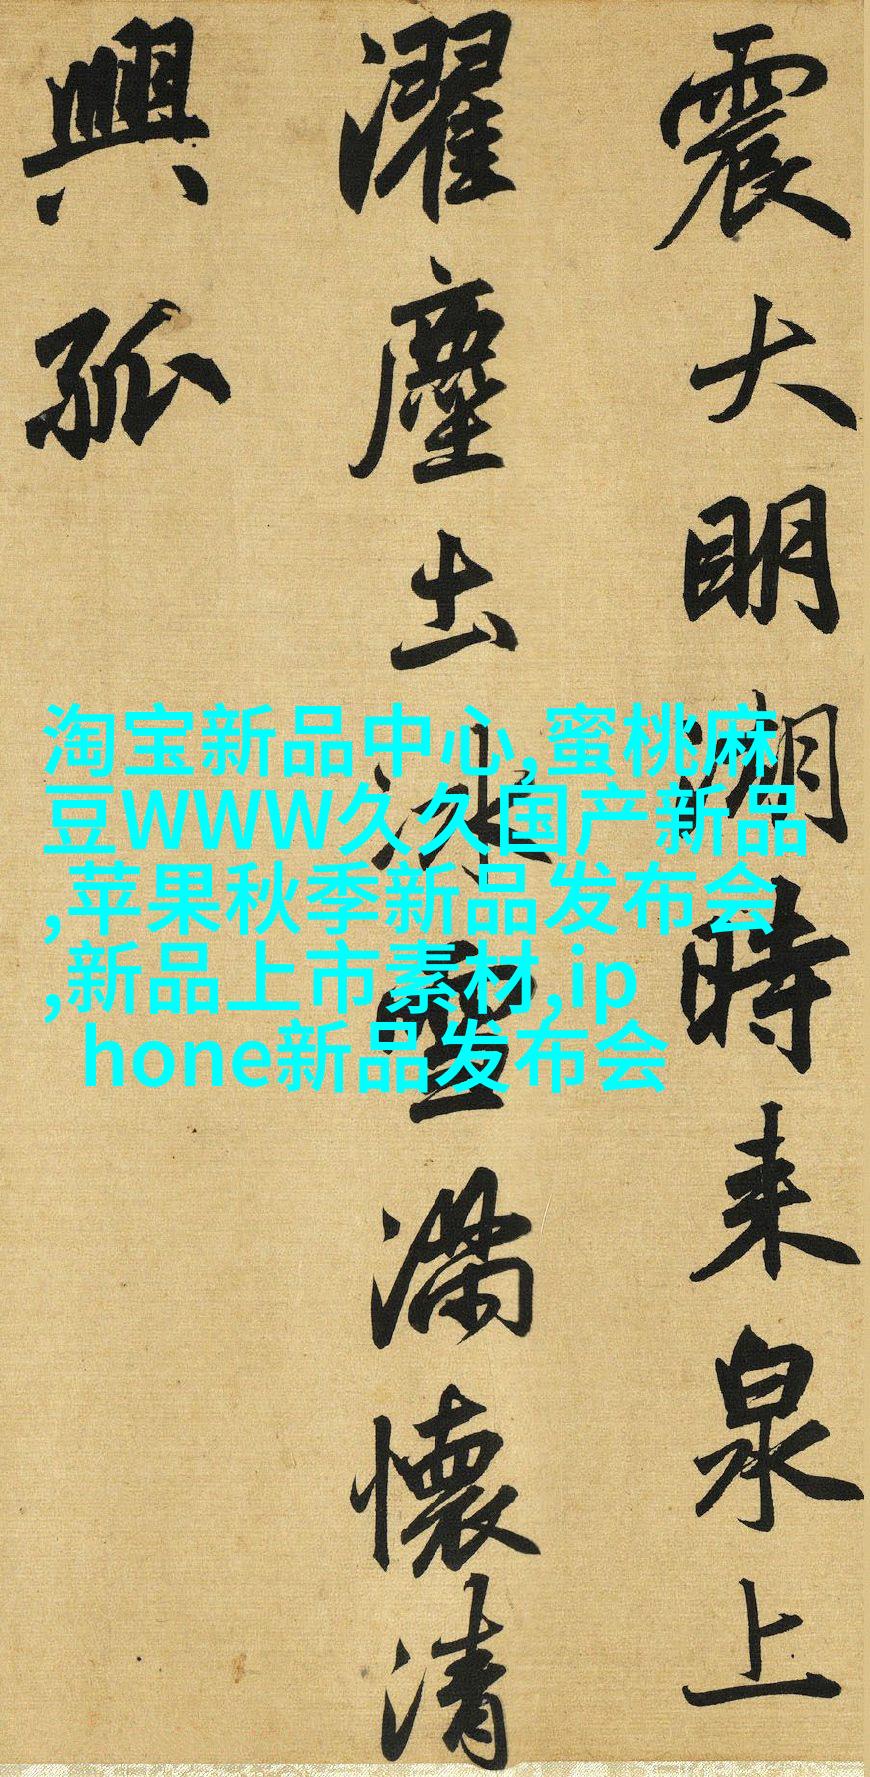 震大明湖時来泉上
濯塵出冰雪滿懷清
興孤
淘宝新品中心,蜜桃麻
豆WWW久久国产新品
,苹果秋季新品发布会
,新品上市素材,ip
hone新品发布会